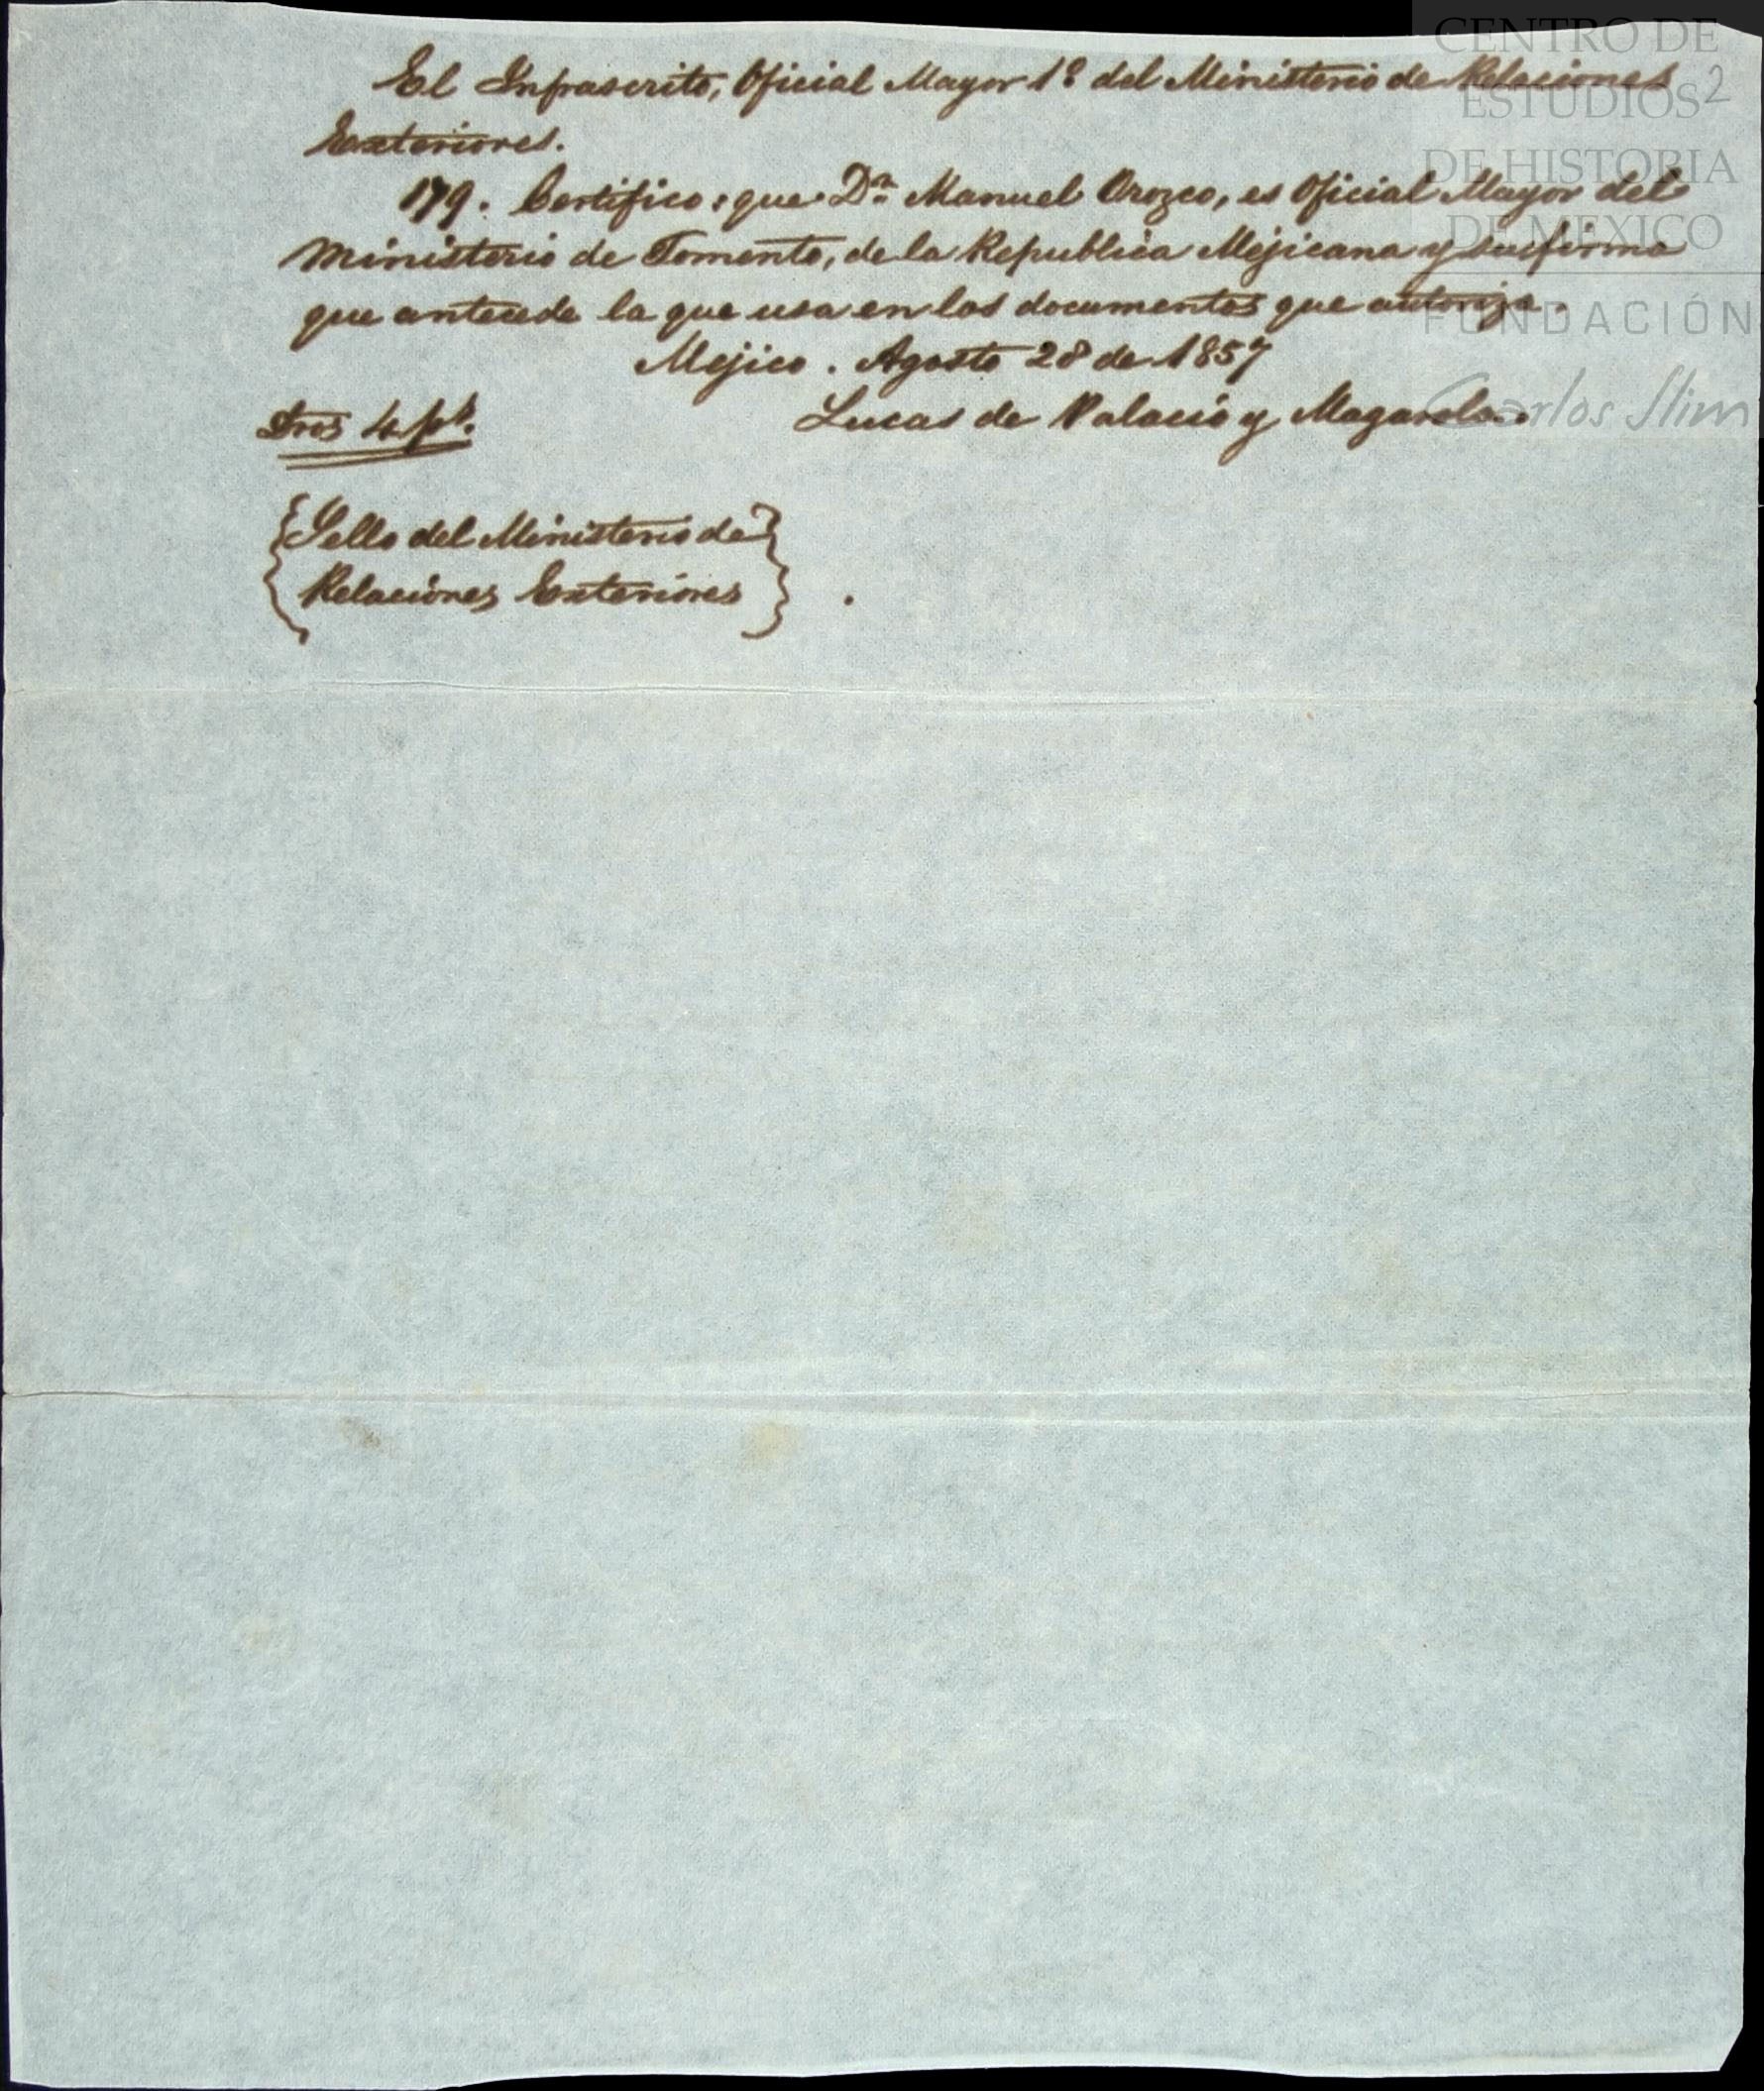 El Infrascrito, Oficial Mayor 1º del Ministerio de Relaciones
Exteriores.
179. Certifico: que Dn Manuel Orozco, es Oficial Mayor del
Ministerio de Fomento, de la Republica Mejicana y su firma
que antecede la que usa en los documentos que autoriza.
Mejico. Agosto 28 de 1857
Dros 4 ps.
Lucas de Palacio y Magarola.
{Sello del Ministerio de}
{Relaciones Exteriores}.
2
CENTRO DE
ESTUDIOS
DE HISTORIA
DE MÉXICO
FUNDACIÓN
Carlos Slim